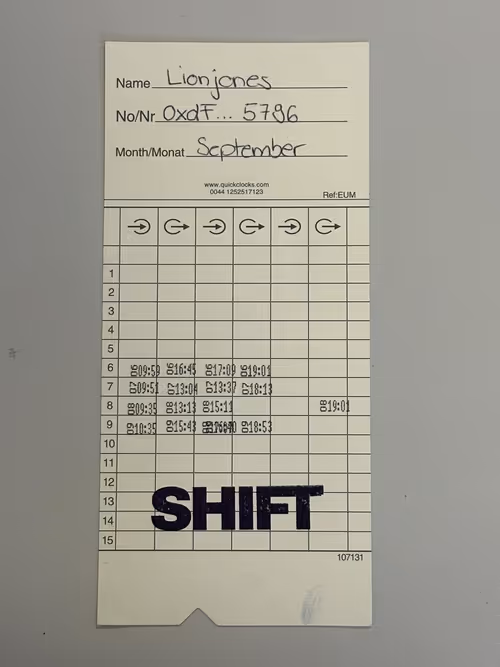 Name Lionjones
No/Nr 0xdF... 5796
Month/Monat September
www.quickclocks.com
0044 1252517123
Ref:EUM
1
2
3
4
5
6 06 09:59 06 16:45 06 17:09 06 19:01
7 07 09:51 07 13:04 07 13:37 07 18:13
8 08 09:35 08 13:13 08 15:11 08 19:01
9 09 10:35 09 15:43 09 18:53
10
11
12
13
14
15
SHIFT
107131